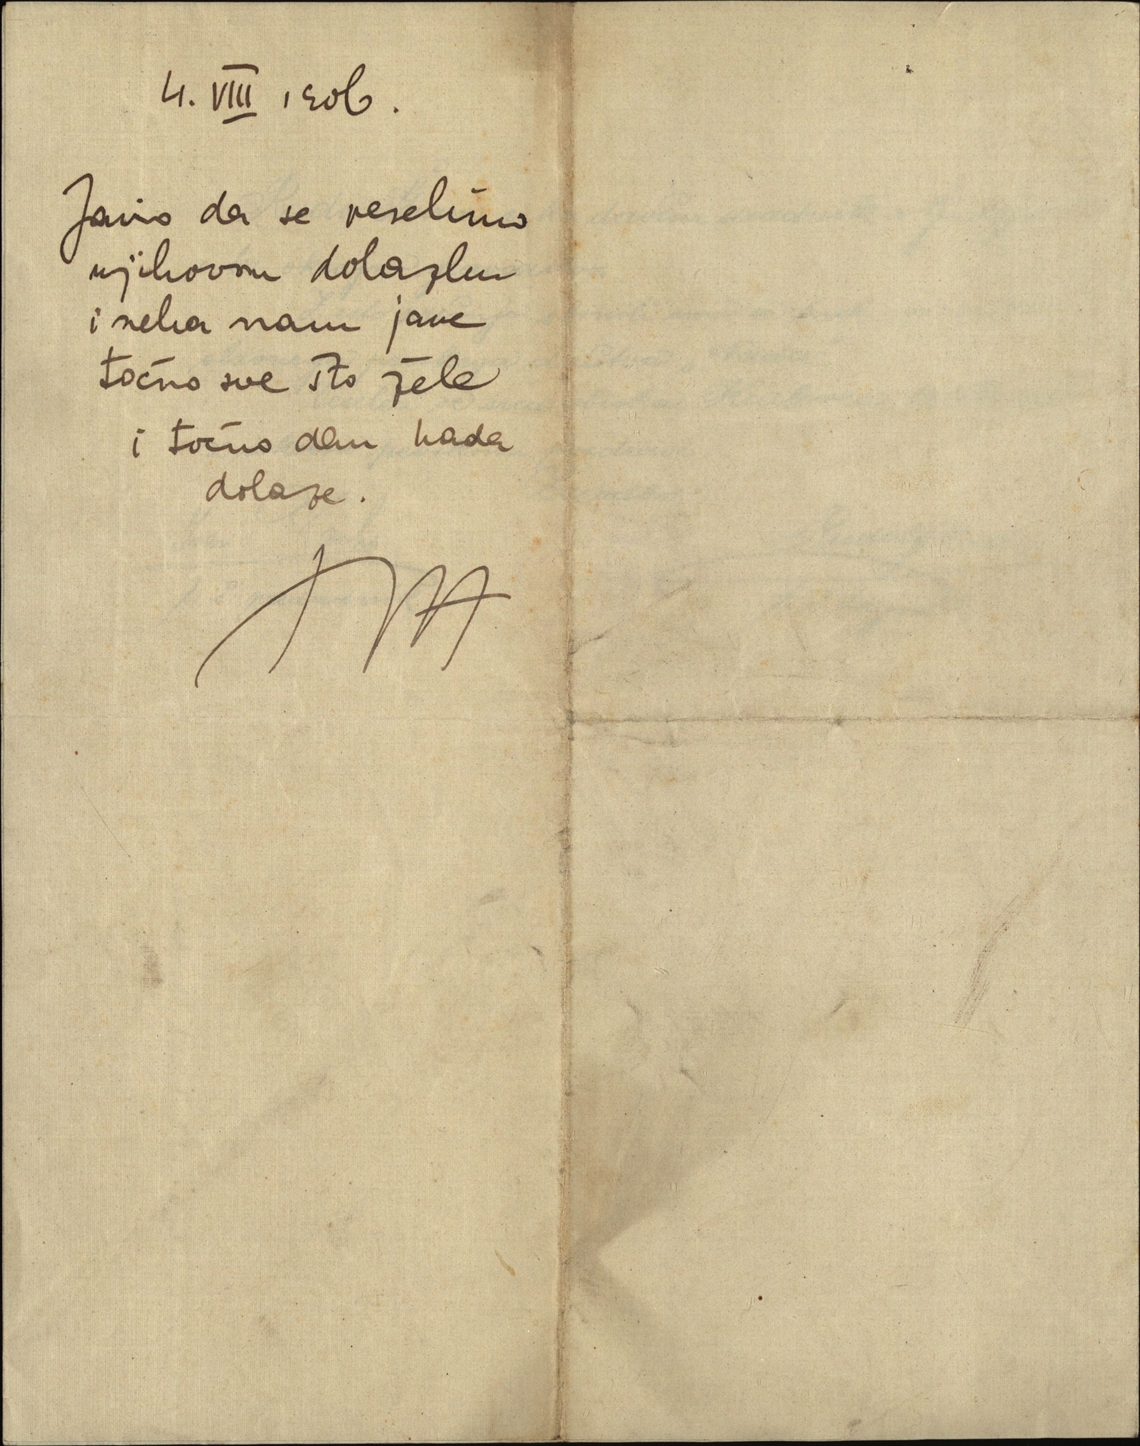 4. VIII 1906.
Javio da se veselimo
njihovom dolazku
i neka nam jave
točno sve što žele
i točno dan kada
dolaze.